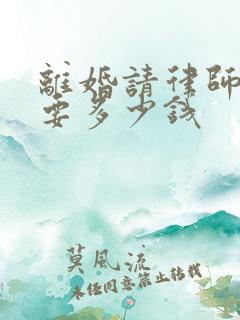 離婚請律師
要多少錢
莫風流
未任同意禁止转载